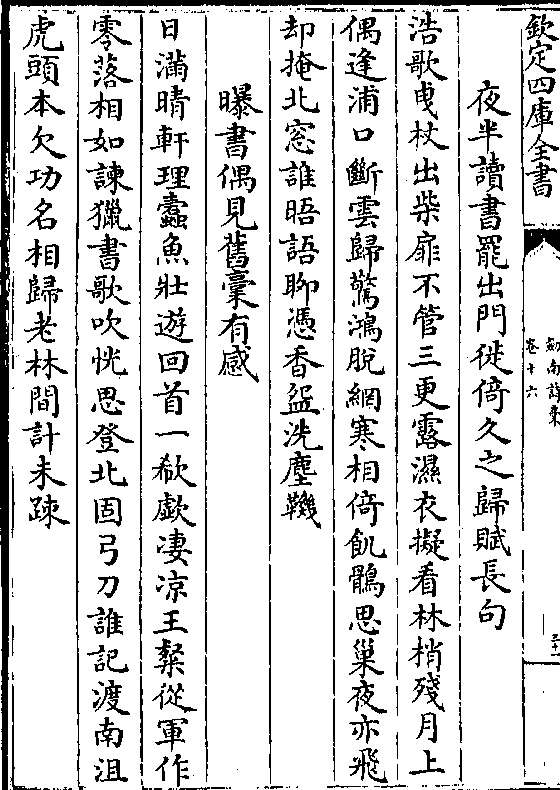 欽定四庫全書
劒南詩稾
卷十六
夜半讀書罷出門徙倚久之歸賦長句
浩歌曳杖出柴扉不管三更露濕衣擬看林梢殘月上
偶逢浦口斷雲歸驚鴻脫網寒相倚飢鶻思巢夜亦飛
却掩北窓誰晤語聊憑香盌洗塵鞿
曝書偶見舊稾有感
日滿晴軒理蠹魚壯遊回首一欷歔凄凉王粲從軍作
零落相如諫獵書歌吹恍思登北固弓刀誰記渡南沮
虎頭本欠功名相歸老林間計未踈